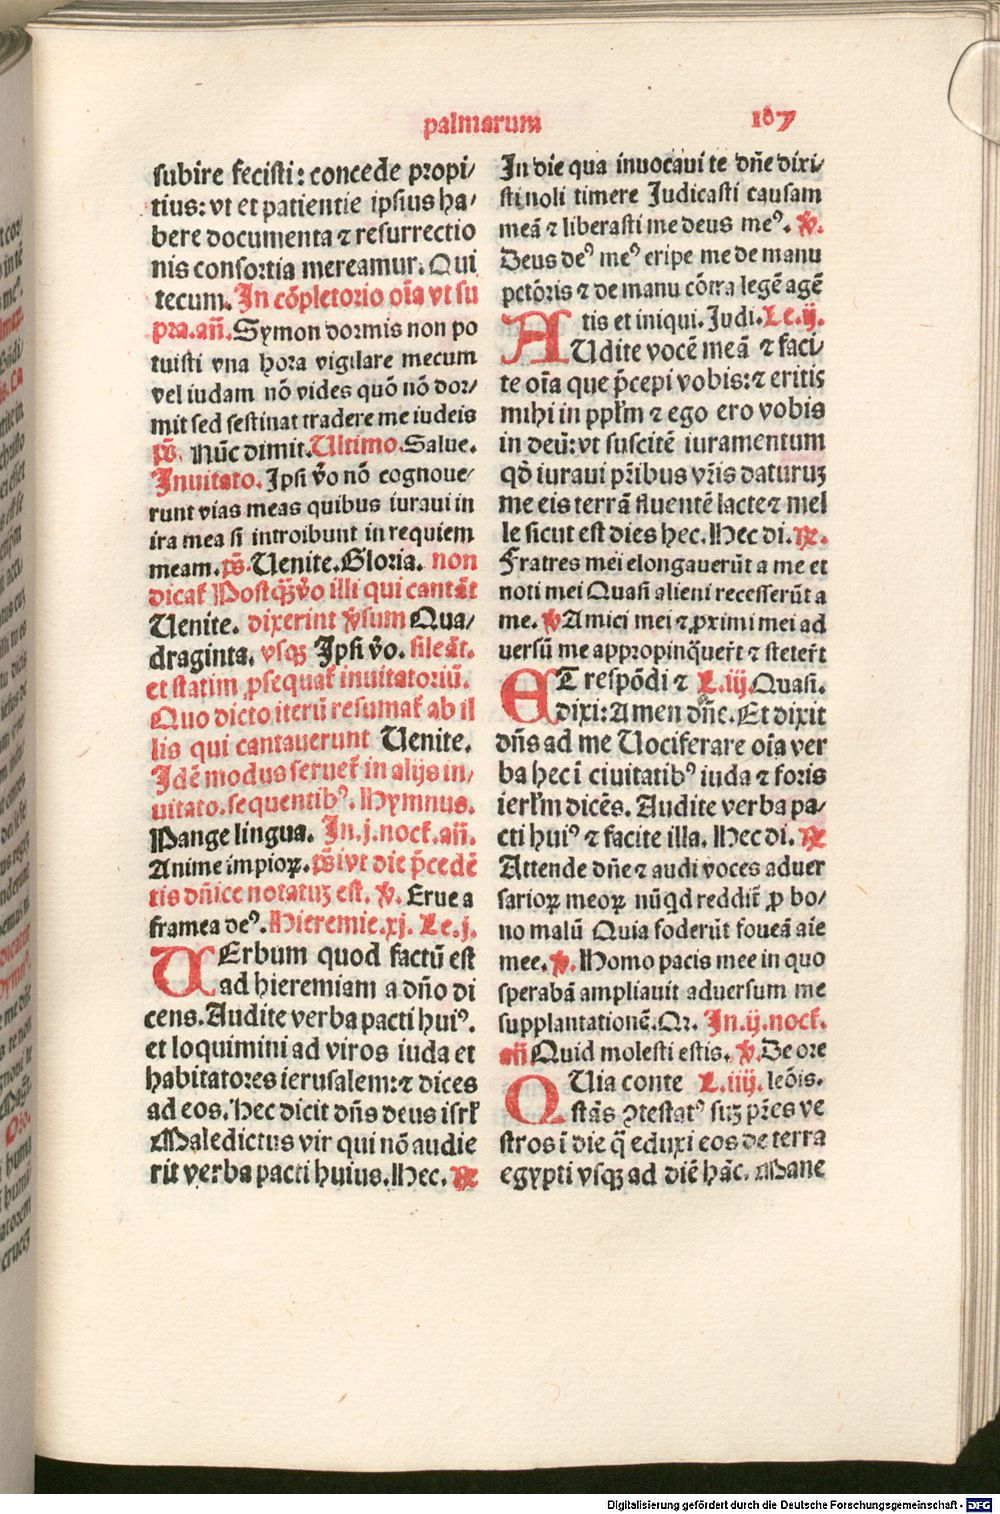 palmarum
167
subire fecisti: concede propi/
tius: vt et patientie ipsius ha/
bere documenta ⁊ resurrectio
nis consortia mereamur. Qui
tecum. In cōpletorio oīa vt su
pra. añ. Symon dormis non po
tuisti vna hora vigilare mecum
vel iudam nō vides quō nō dor/
mit sed festinat tradere me iudeis
p̄s. Nūc dimit. Ultimo. Salue.
Inuitato. Ipsi v̄o nō cognoue/
runt vias meas quibus iuraui in
ira mea si introibunt in requiem
meam. p̄s. Uenite. Gloria. non
dicať Postꝙ̄ v̄o illi qui cantāt
Uenite. dixerint v̄sum Qua/
draginta. vsqꝫ Ipsi v̄o. sileāt.
et statim ꝓsequať inuitatoriū.
Quo dicto iterū resumať ab il
lis qui cantauerunt Uenite.
Idē modus serueť in alijs in/
uitato. sequentibꝰ. Hymnus.
Pange lingua. In .j. nocť. añ.
Anime impioꝝ. p̄s ivt die p̄cedē
tis dñice notatuꝫ est. ℣. Erue a
framea deꝰ. Hieremie. xj. Le. j.
UErbum quod factū est
ad hieremiam a dño di
cens. Audite verba pacti huiꝰ.
et loquimini ad viros iuda et
habitatores ierusalem: ⁊ dices
ad eos. Hec dicit dñs deus isrł
Maledictus vir qui nō audie
rit verba pacti huius. Hec. ℟
In die qua inuocaui te dñe dixi/
sti noli timere Judicasti causam
meā ⁊ liberasti me deus meꝰ. ℣.
Deus deꝰ meꝰ eripe me de manu
pctōris ⁊ de manu cōtra legē agē
tis et iniqui. Judi. Le. ij.
AUdite vocē meā ⁊ faci/
te oīa que p̄cepi vobis: ⁊ eritis
mihi in pplm̄ ⁊ ego ero vobis
in deū: vt suscitē iuramentum
qđ iuraui p̄ribus vr̄is daturuꝫ
me eis terrā fluentē lacte ⁊ mel
le sicut est dies hec. Hec di. ℟.
Fratres mei elongauerūt a me et
noti mei Quasi alieni recesserūt a
me. ℣ Amici mei ⁊ ꝓximi mei ad
uersū me appropinq̄uer̄t ⁊ steter̄t
ET respōdi ⁊ L. iij. Quasi.
dixi: Amen dñe. Et dixit
dñs ad me Uociferare oīa ver
ba hec ī ciuitatibꝰ iuda ⁊ foris
ierłm dicēs. Audite verba pa/
cti huiꝰ ⁊ facite illa. Hec di. ℟
Attende dñe ⁊ audi voces aduer
sarioꝝ meoꝝ nūqd reddiť ꝓ bo/
no malū Quia foderūt foueā aīe
mee. ℣. Homo pacis mee in quo
sperabā ampliauit aduersum me
supplantationē. Qr. In .ij. nocť.
añ Quid molesti estis. ℣. De ore
QUia conte L. iiij. leōis.
stās ꝯtestatꝰ suꝫ p̄res ve
stros ī die q̄ eduxi eos de terra
egypti vsqꝫ ad diē hāc. Mane
Digitalisierung gefördert durch die Deutsche Forschungsgemeinschaft - DFG